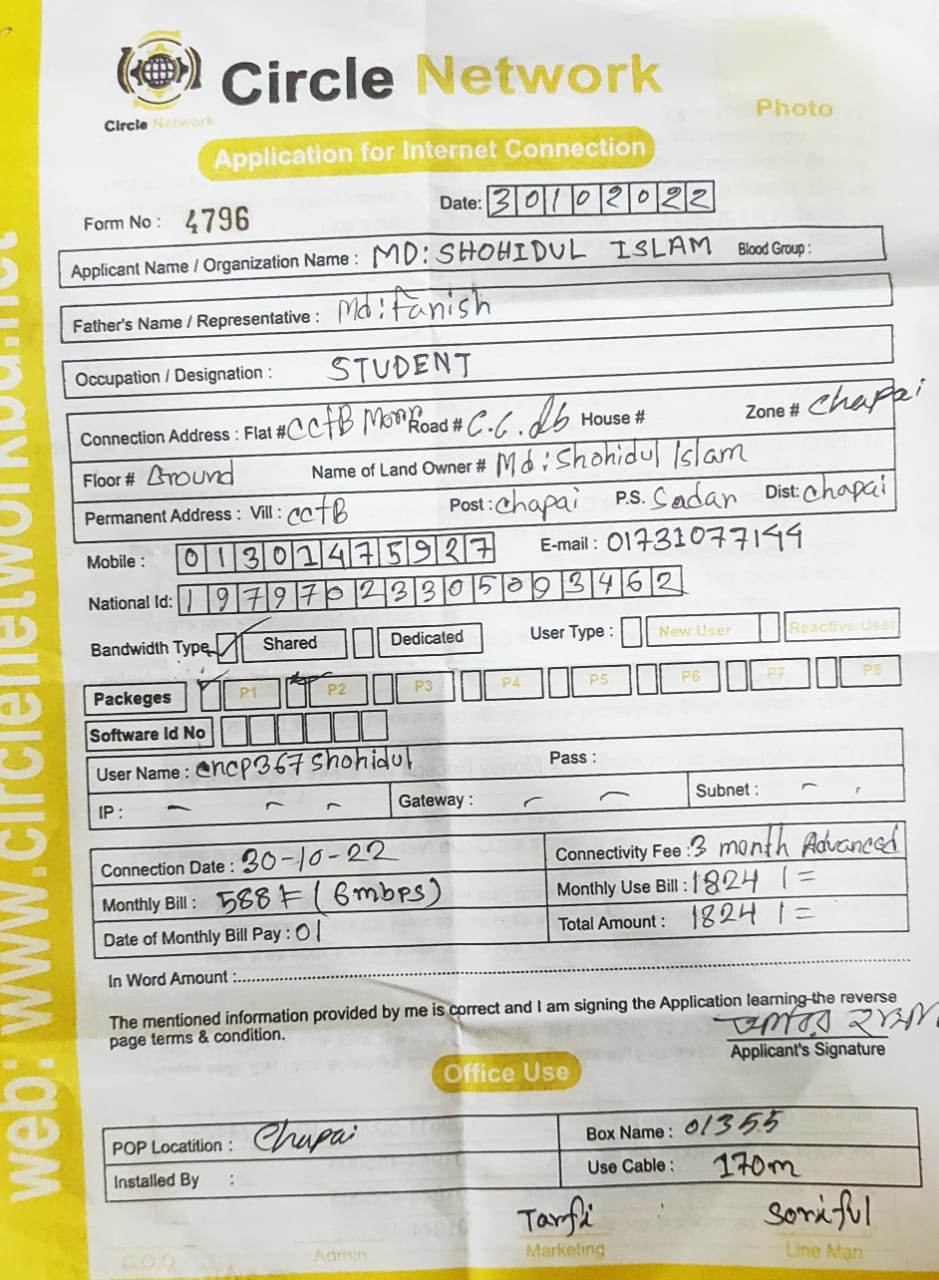 Circle Network
Circle Network
Photo
Application for Internet Connection
Form No : 4796
Date: 30102022
Applicant Name / Organization Name : MD: SHOHIDUL ISLAM Blood Group :
Father's Name / Representative : Md: Fanish
Occupation / Designation : STUDENT
Connection Address : Flat # CCtB Road # C.C.db House # Zone # Chapai
Floor # Ground Name of Land Owner # Md: Shohidul Islam
Permanent Address : Vill : CCtB Post : Chapai P.S. Sadar Dist: Chapai
Mobile : 01301475927 E-mail : 01731077144
National Id: 19797023305003462
Bandwidth Type Shared Dedicated User Type : New User Reactive User
Packeges P1 P2 P3 P4 P5 P6 P7 P8
Software Id No
User Name : cncp367shohidul Pass :
IP : – – – Gateway : – – Subnet : –
Connection Date : 30-10-22 Connectivity Fee : 3 month Advanced
Monthly Bill : 588 (6mbps) Monthly Use Bill : 1824 /=
Date of Monthly Bill Pay : 01 Total Amount : 1824 /=
In Word Amount :
The mentioned information provided by me is correct and I am signing the Application learning the reverse
page terms & condition.
Applicant's Signature
Office Use
POP Locatition : Chapai Box Name : 01355
Installed By : Use Cable : 170m
Tarfi Soriful
C.O.O Admin Marketing Line Man
web: www.circlenetworkbd.net